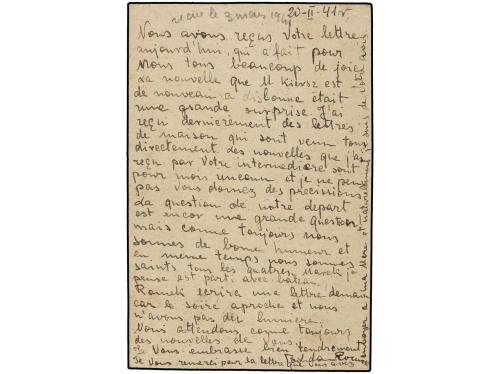 recue le 3 mars 1941
20-II-41 r.
Nous avons reçus Votre lettre
aujourd'hui, qui a fait pour
nous tous beaucoup de joie
La nouvelle que M Kiersz est
de nouveau a Lisbonne était
une grande surprise J'ai
reçu dernierement des lettres
de maison qui sont venu tous
directement. Les nouvelles que j'ai
reçu par Votre intermediere sont
pour moi inconu et je ne peu
pas Vous donner des precissions
La question de notre depart
est encor une grande question
mais comme toujours nous
sommes de bone humeur et
en même temps nous sommes
saints tous les quatres. Marek je
pense est parti avec
Romek ecrira une lettre demain
car le soire aproche et nous
n'avons pas de lumière.
Nous attendons come toujours
des nouvelles de Vous.
Je Vous embrasse bien tendrement
Je Vous remercie pour la lettre que Vous avez
envoyer a ma Mere et naturellement suis de Votre avis